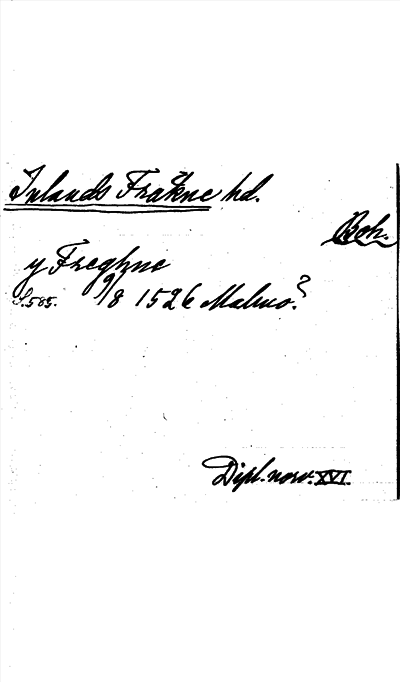 Inlands Fräkne hd.
Boh.
y Freghne
S. 585. 9/8 1526 Malmö?
Dipl. norv. XVI.